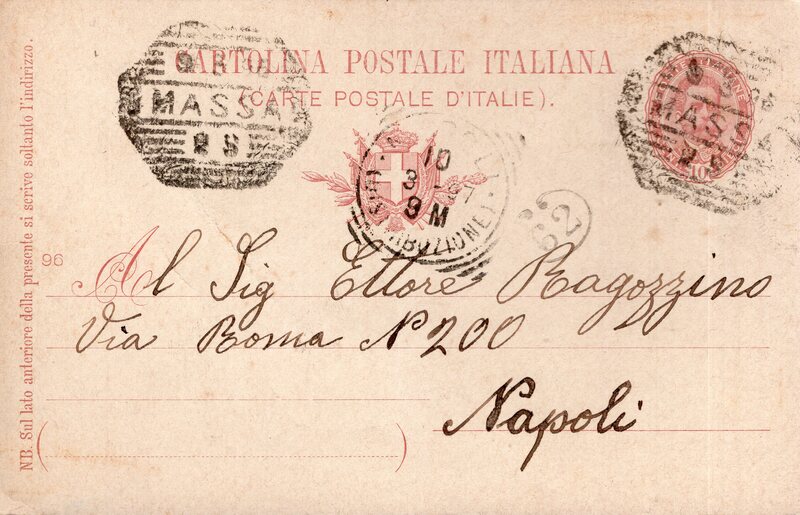 CARTOLINA POSTALE ITALIANA
(CARTE POSTALE D'ITALIE).
MASSA
MAS
10
10
3
9 M
BUZIONE
62
96
Al Sig Ettore Ragozzino
Via Roma N 200
Napoli
NB. Sul lato anteriore della presente si scrive soltanto l'indirizzo.